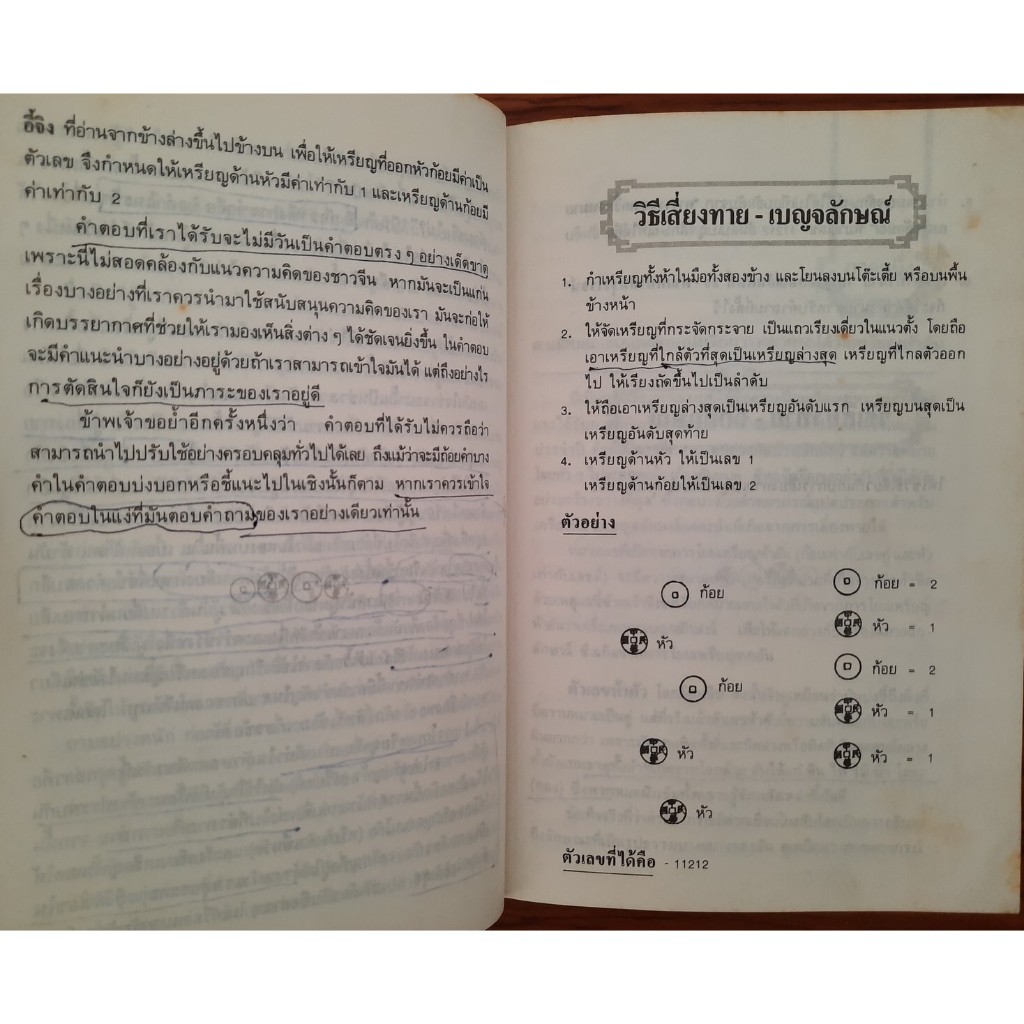 อี้จิง ที่อ่านจากข้างล่างขึ้นไปข้างบน เพื่อให้เหรียญที่ออกหัวก้อยมีค่าเป็น
ตัวเลข จึงกำหนดให้เหรียญด้านหัวมีค่าเท่ากับ 1 และเหรียญด้านก้อยมี
ค่าเท่ากับ 2
คำตอบที่เราได้รับจะไม่มีวันเป็นคำตอบตรง ๆ อย่างเด็ดขาด
เพราะนี่ไม่สอดคล้องกับแนวความคิดของชาวจีน หากมันจะเป็นแก่น
เรื่องบางอย่างที่เราควรนำมาใช้สนับสนุนความคิดของเรา มันจะก่อให้
เกิดบรรยากาศที่ช่วยให้เรามองเห็นสิ่งต่าง ๆ ได้ชัดเจนยิ่งขึ้น ในคำตอบ
จะมีคำแนะนำบางอย่างอยู่ด้วยถ้าเราสามารถเข้าใจมันได้ แต่ถึงอย่างไร
การตัดสินใจก็ยังเป็นภาระของเราอยู่ดี
ข้าพเจ้าขอย้ำอีกครั้งหนึ่งว่า คำตอบที่ได้รับไม่ควรถือว่า
สามารถนำไปปรับใช้อย่างครอบคลุมทั่วไปได้เลย ถึงแม้ว่าจะมีถ้อยคำบาง
คำในคำตอบบ่งบอกหรือชี้แนะไปในเชิงนั้นก็ตาม หากเราควรเข้าใจ
คำตอบในแง่ที่มันตอบคำถามของเราอย่างเดียวเท่านั้น
วิธีเสี่ยงทาย - เบญจลักษณ์
1. กำเหรียญทั้งห้าในมือทั้งสองข้าง และโยนลงบนโต๊ะเตี้ย หรือบนพื้น
ข้างหน้า
2. ให้จัดเหรียญที่กระจัดกระจาย เป็นแถวเรียงเดี่ยวในแนวตั้ง โดยถือ
เอาเหรียญที่ใกล้ตัวที่สุดเป็นเหรียญล่างสุด เหรียญที่ไกลตัวออก
ไป ให้เรียงถัดขึ้นไปเป็นลำดับ
3. ให้ถือเอาเหรียญล่างสุดเป็นเหรียญอันดับแรก เหรียญบนสุดเป็น
เหรียญอันดับสุดท้าย
4. เหรียญด้านหัว ให้เป็นเลข 1
เหรียญด้านก้อยให้เป็นเลข 2
ตัวอย่าง
ก้อย
หัว
ก้อย
หัว
หัว
ก้อย = 2
หัว = 1
ก้อย = 2
หัว = 1
หัว = 1
ตัวเลขที่ได้คือ - 11212